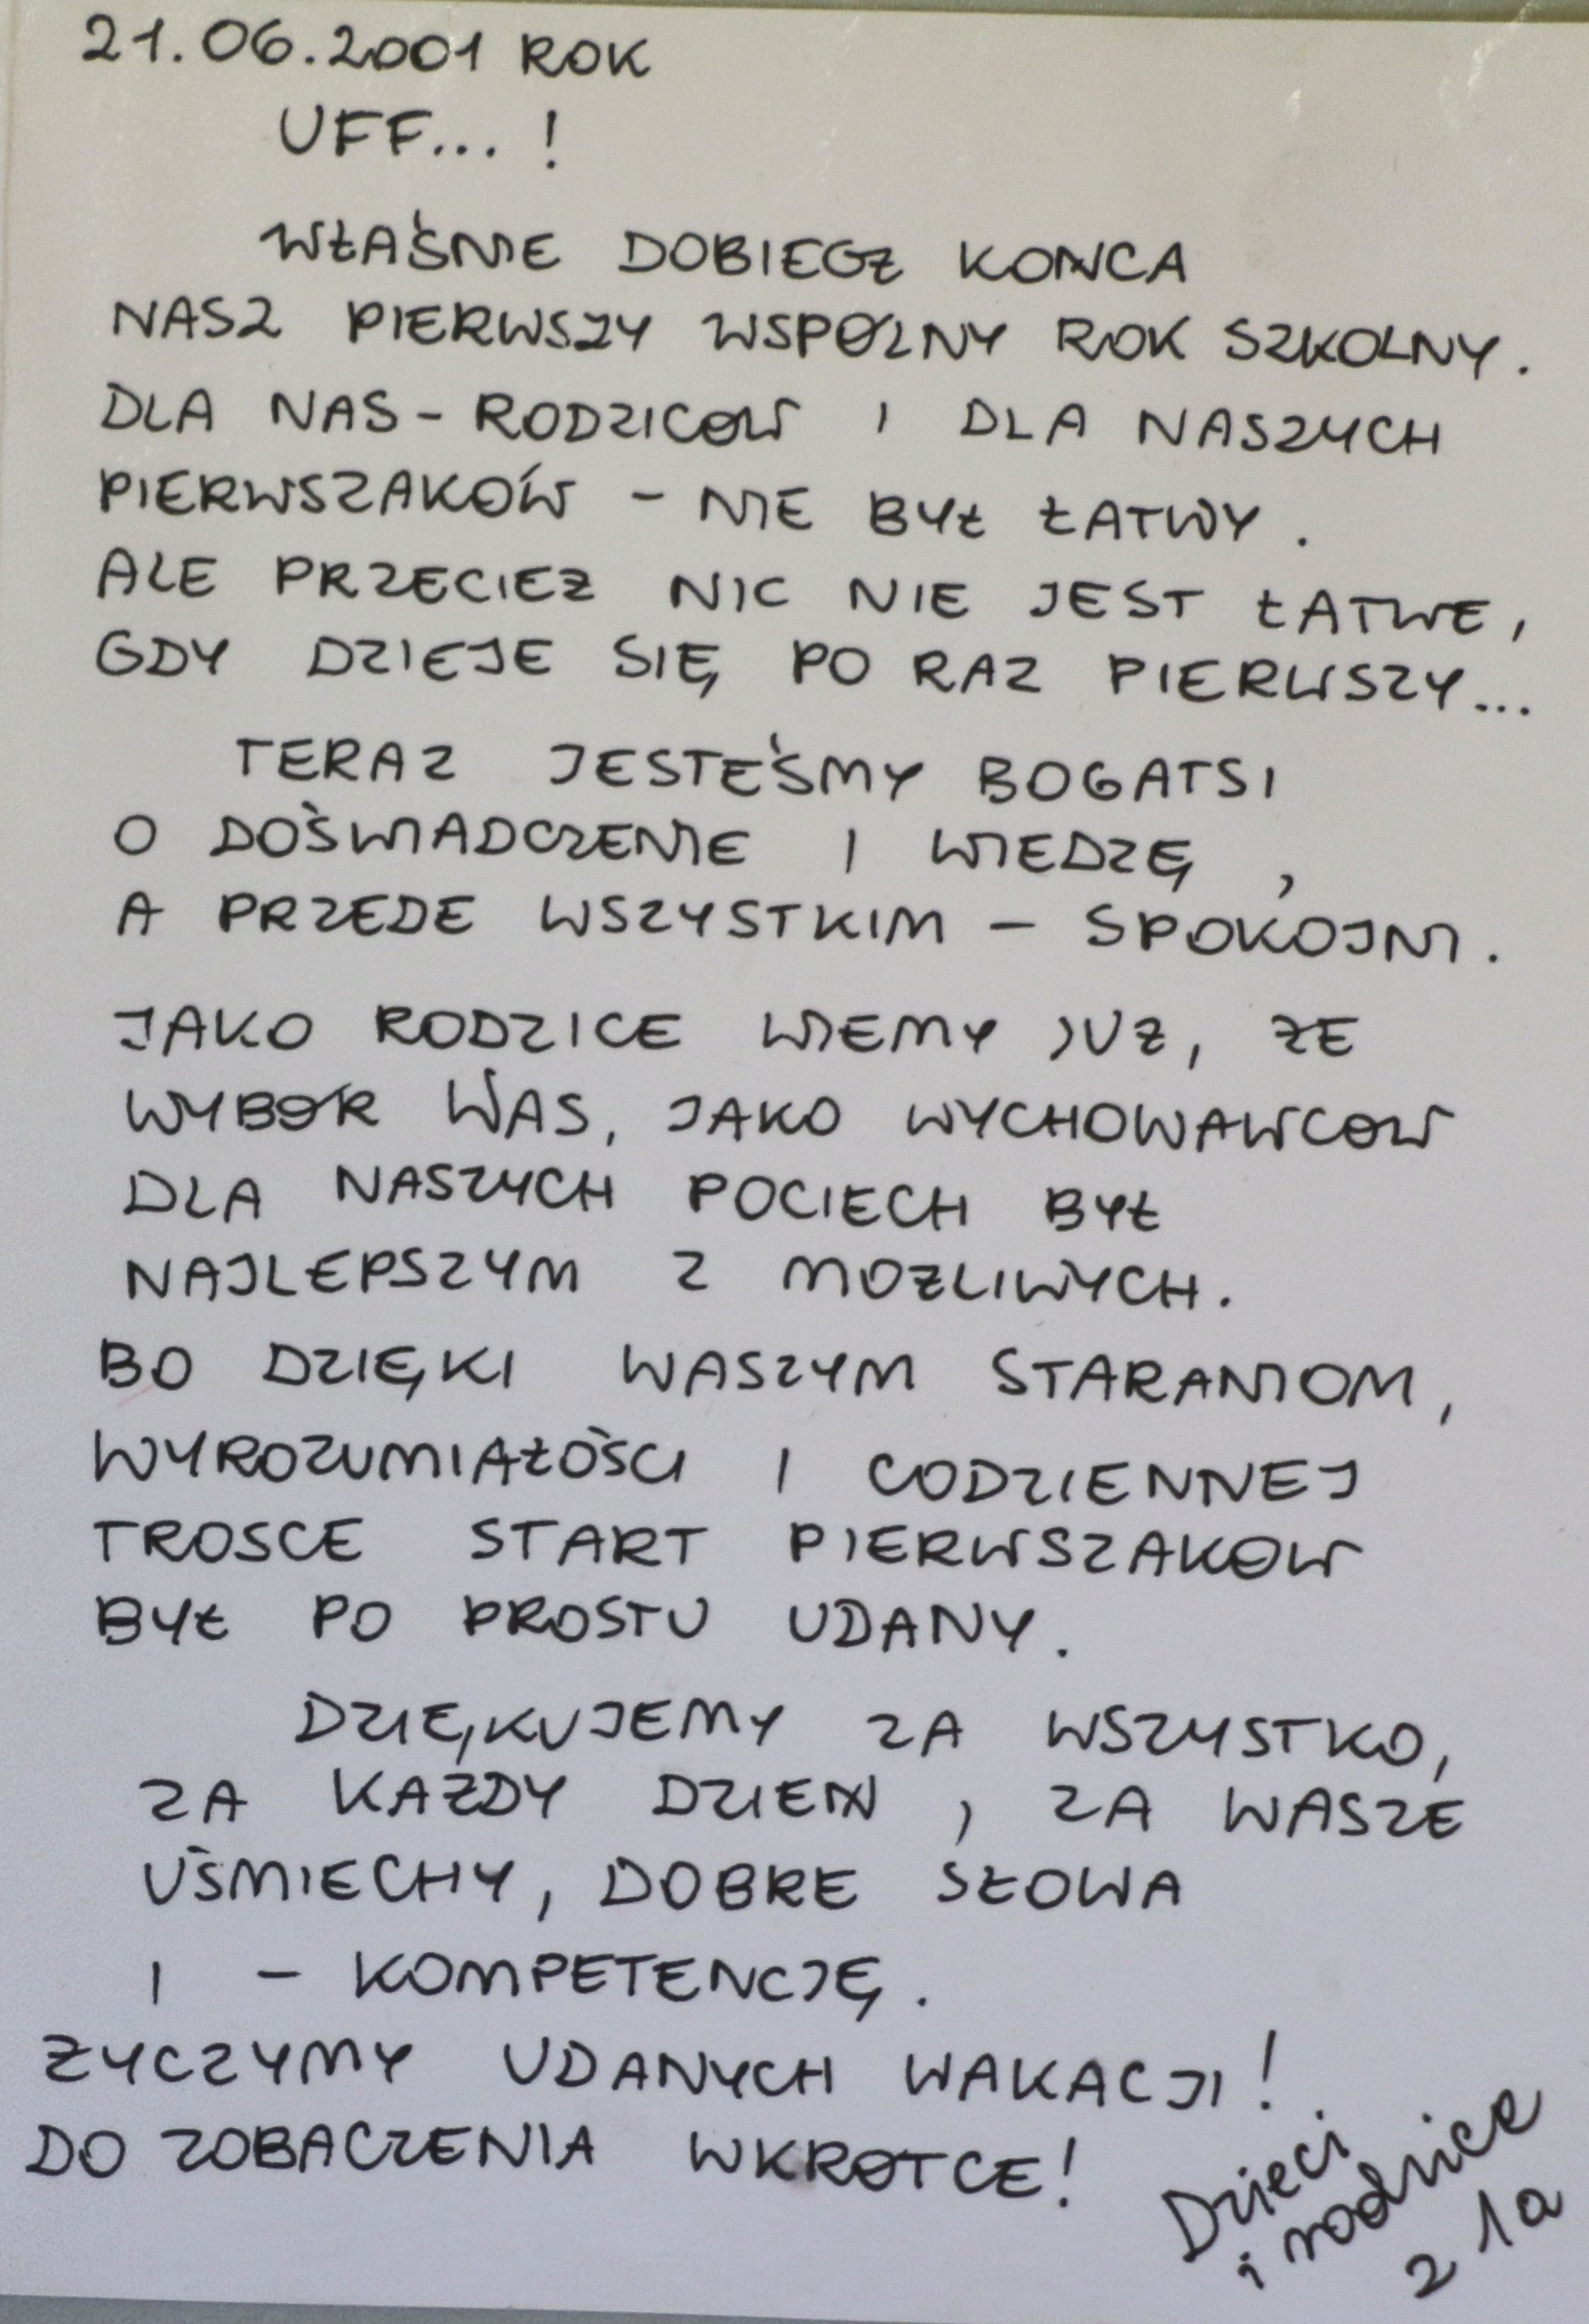 21.06.2001 ROK
UFF... !
WŁAŚNIE DOBIEGŁ KOŃCA
NASZ PIERWSZY WSPÓLNY ROK SZKOLNY.
DLA NAS - RODZICÓW I DLA NASZYCH
PIERWSZAKÓW - NIE BYŁ ŁATWY.
ALE PRZECIEŻ NIC NIE JEST ŁATWE,
GDY DZIEJE SIĘ PO RAZ PIERWSZY...
TERAZ JESTEŚMY BOGATSI
O DOŚWIADCZENIE I WIEDZĘ,
A PRZEDE WSZYSTKIM - SPOKOJNI.
JAKO RODZICE WIEMY JUŻ, ŻE
WYBÓR WAS, JAKO WYCHOWAWCÓW
DLA NASZYCH POCIECH BYŁ
NAJLEPSZYM Z MOŻLIWYCH.
BO DZIĘKI WASZYM STARANIOM,
WYROZUMIAŁOŚCI I CODZIENNEJ
TROSCE START PIERWSZAKÓW
BYŁ PO PROSTU UDANY.
DZIĘKUJEMY ZA WSZYSTKO,
ZA KAŻDY DZIEŃ, ZA WASZE
UŚMIECHY, DOBRE SŁOWA
I - KOMPETENCJĘ.
ŻYCZYMY UDANYCH WAKACJI!
DO ZOBACZENIA WKRÓTCE!
Dzieci
i rodzice
z 1a